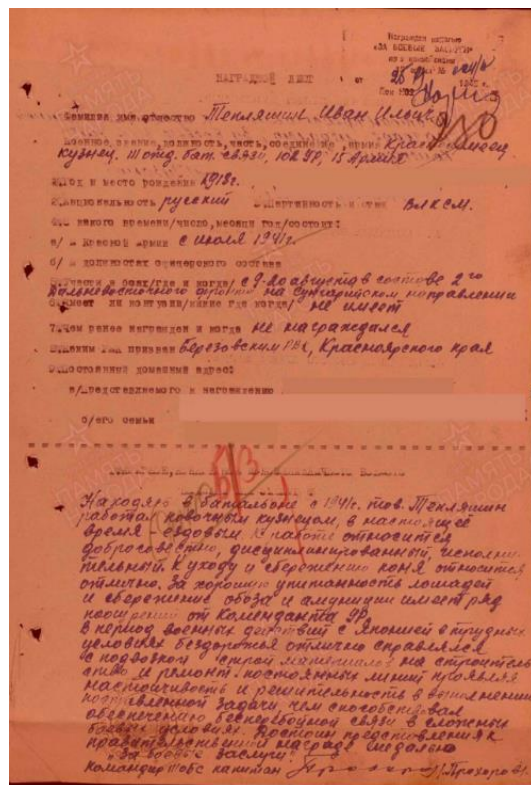 Награжден медалью
"ЗА БОЕВЫЕ ЗАСЛУГИ"
НАГРАДНОЙ ЛИСТ
от
1945 г.
Фамилия имя отчество Тепляшин Иван Ильич
Военное звание, должность, часть, соединение, армия Красноармеец
кузнец. III отд. бат. связи, 102 УР, 15 Армия
2. Год и место рождения 1918г.
3. Национальность русский 4. Партийность и стаж ВЛКСМ.
5. С какого времени/число, месяц год/состоит:
а/ в Красной Армии с июля 1941г.
б/ в должностях офицерского состава
6. Участие в боях/где и когда/ с 9-20 августа в составе 2го
Дальневосточного фронта на Сунгарийском направлении
Имеет ли контузии/какие где когда/ не имеет
7. Чем ранее награжден и когда не награждался
8. Каким РВК призван Березовским РВК, Красноярского края
9. Постоянный домашний адрес:
а/ представляемого к награждению
б/ его семьи
ПАМЯТЬ НАРОДА
Б/З
Находясь в батальоне с 1941г. тов. Тепляшин
работал ковочным кузнецом, в настоящее
время ездовым. К работе относится
добросовестно, дисциплинированный, исполни-
тельный. К уходу и сбережению коня относится
отлично. За хорошую упитанность лошадей
и сбережение обоза и амуниции имеет ряд
поощрений от Коменданта УР.
В период военных действий с Японией в трудных
условиях бездорожья отлично справлялся
с подвозкой строй материалов на строитель-
ство и ремонт постоянных линий проявляя
настойчивость и решительность в выполнении
поставленной задачи, чем способствовал
обеспечению бесперебойной связи в сложных
боевых условиях. Достоин представления к
правительственной награде медалью
"За боевые заслуги".
Командир III обс капитан /Прохоров/.